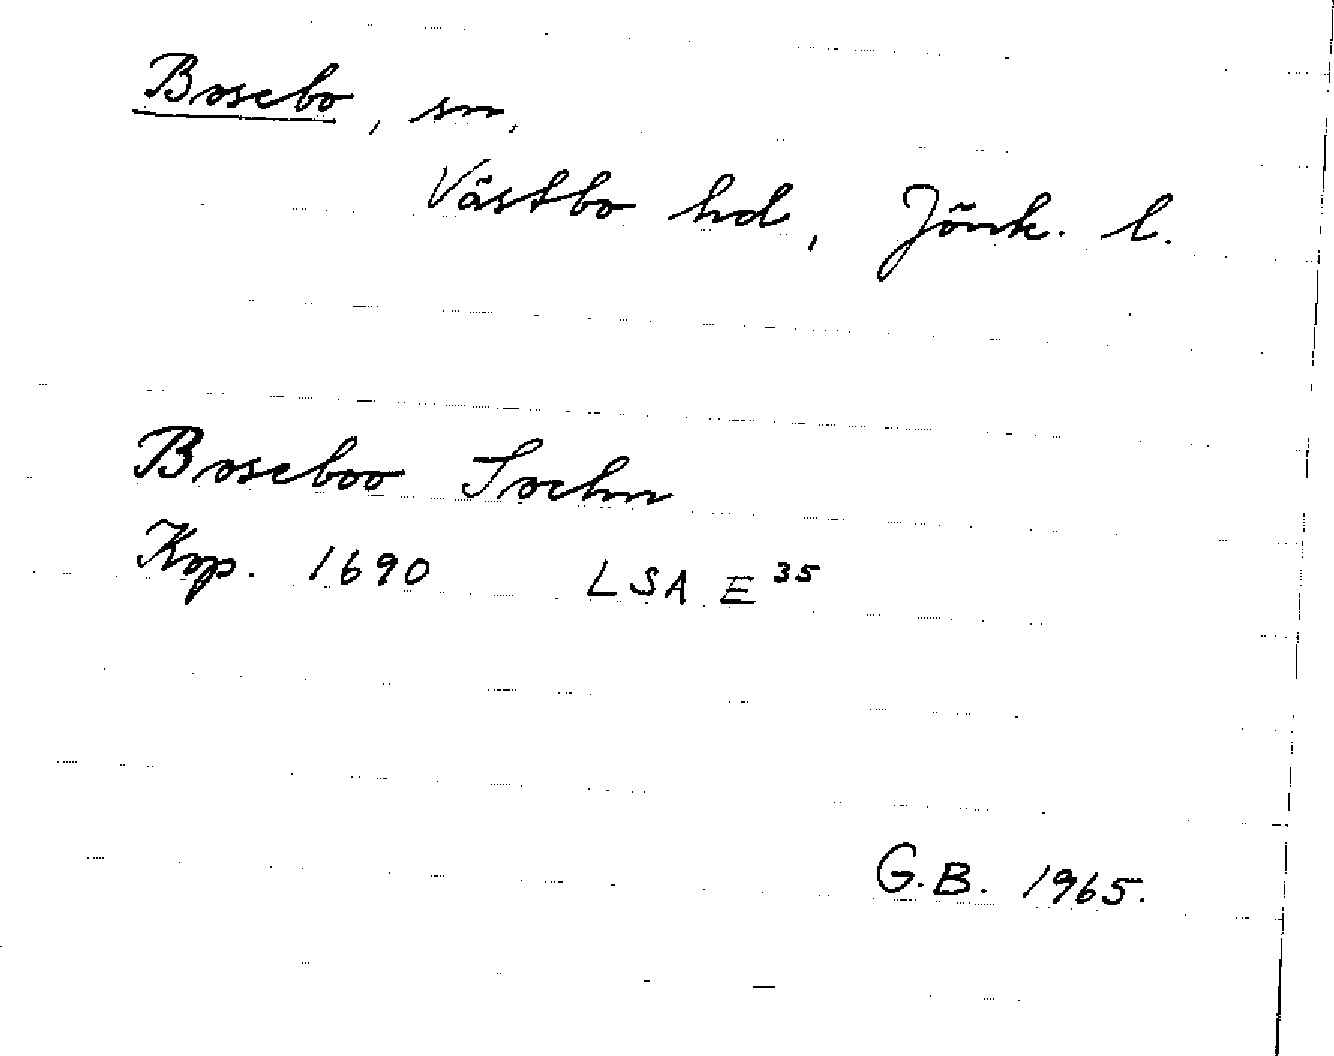 Bosebo, sn,
Västbo hd, Jönk. l.
Boseboo Sochn
Kop. 1690 LSA E 35
G.B. 1965.